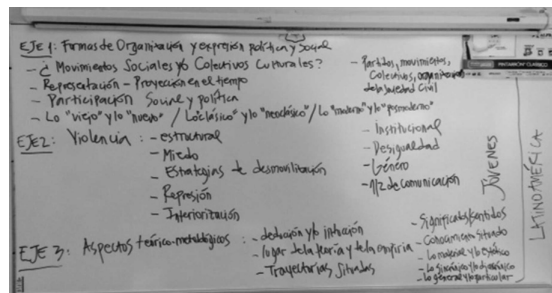 EJE 1: Formas de Organización y expresión política y social
- ¿Movimientos Sociales y/o Colectivos Culturales?
- Representación - Proyección en el tiempo
- Participación Social y política
- Lo "viejo" y lo "nuevo" / Lo "clásico" y lo "neoclásico" / Lo "moderno" y lo "posmoderno"
- Partidos, movimientos,
Colectivos, organizaciones
de la Sociedad Civil
EJE 2: Violencia: - estructural
- Miedo
- Estrategias de desmovilización
- Represión
- Interiorización
- Institucional
- Desigualdad
- Género
- de comunicación
EJE 3: Aspectos teórico-metodológicos: - deducción y/o intuición
- lugar de la teoría y de la empiria
- Trayectorias Situadas
- Significados/sentidos
- Conocimiento situado
- Lo material y lo estético
- Lo sincrónico y lo diacrónico
- Lo general y lo particular
JÓVENES
LATINOAMÉRICA